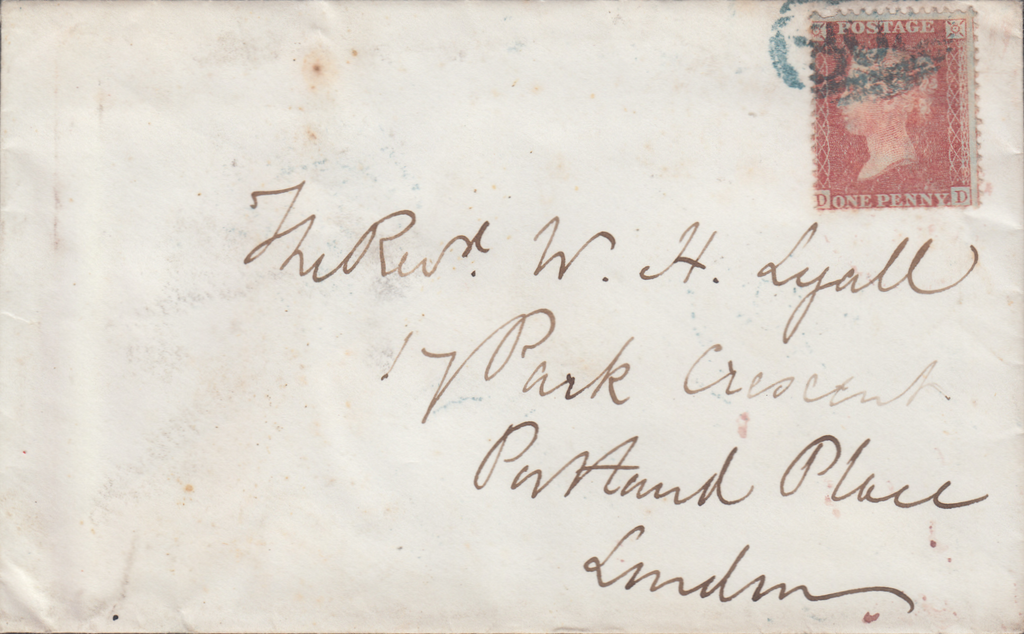 POSTAGE
D ONE PENNY D
The Revd. W. H. Lyall
17 Park Crescent
Portland Place
London